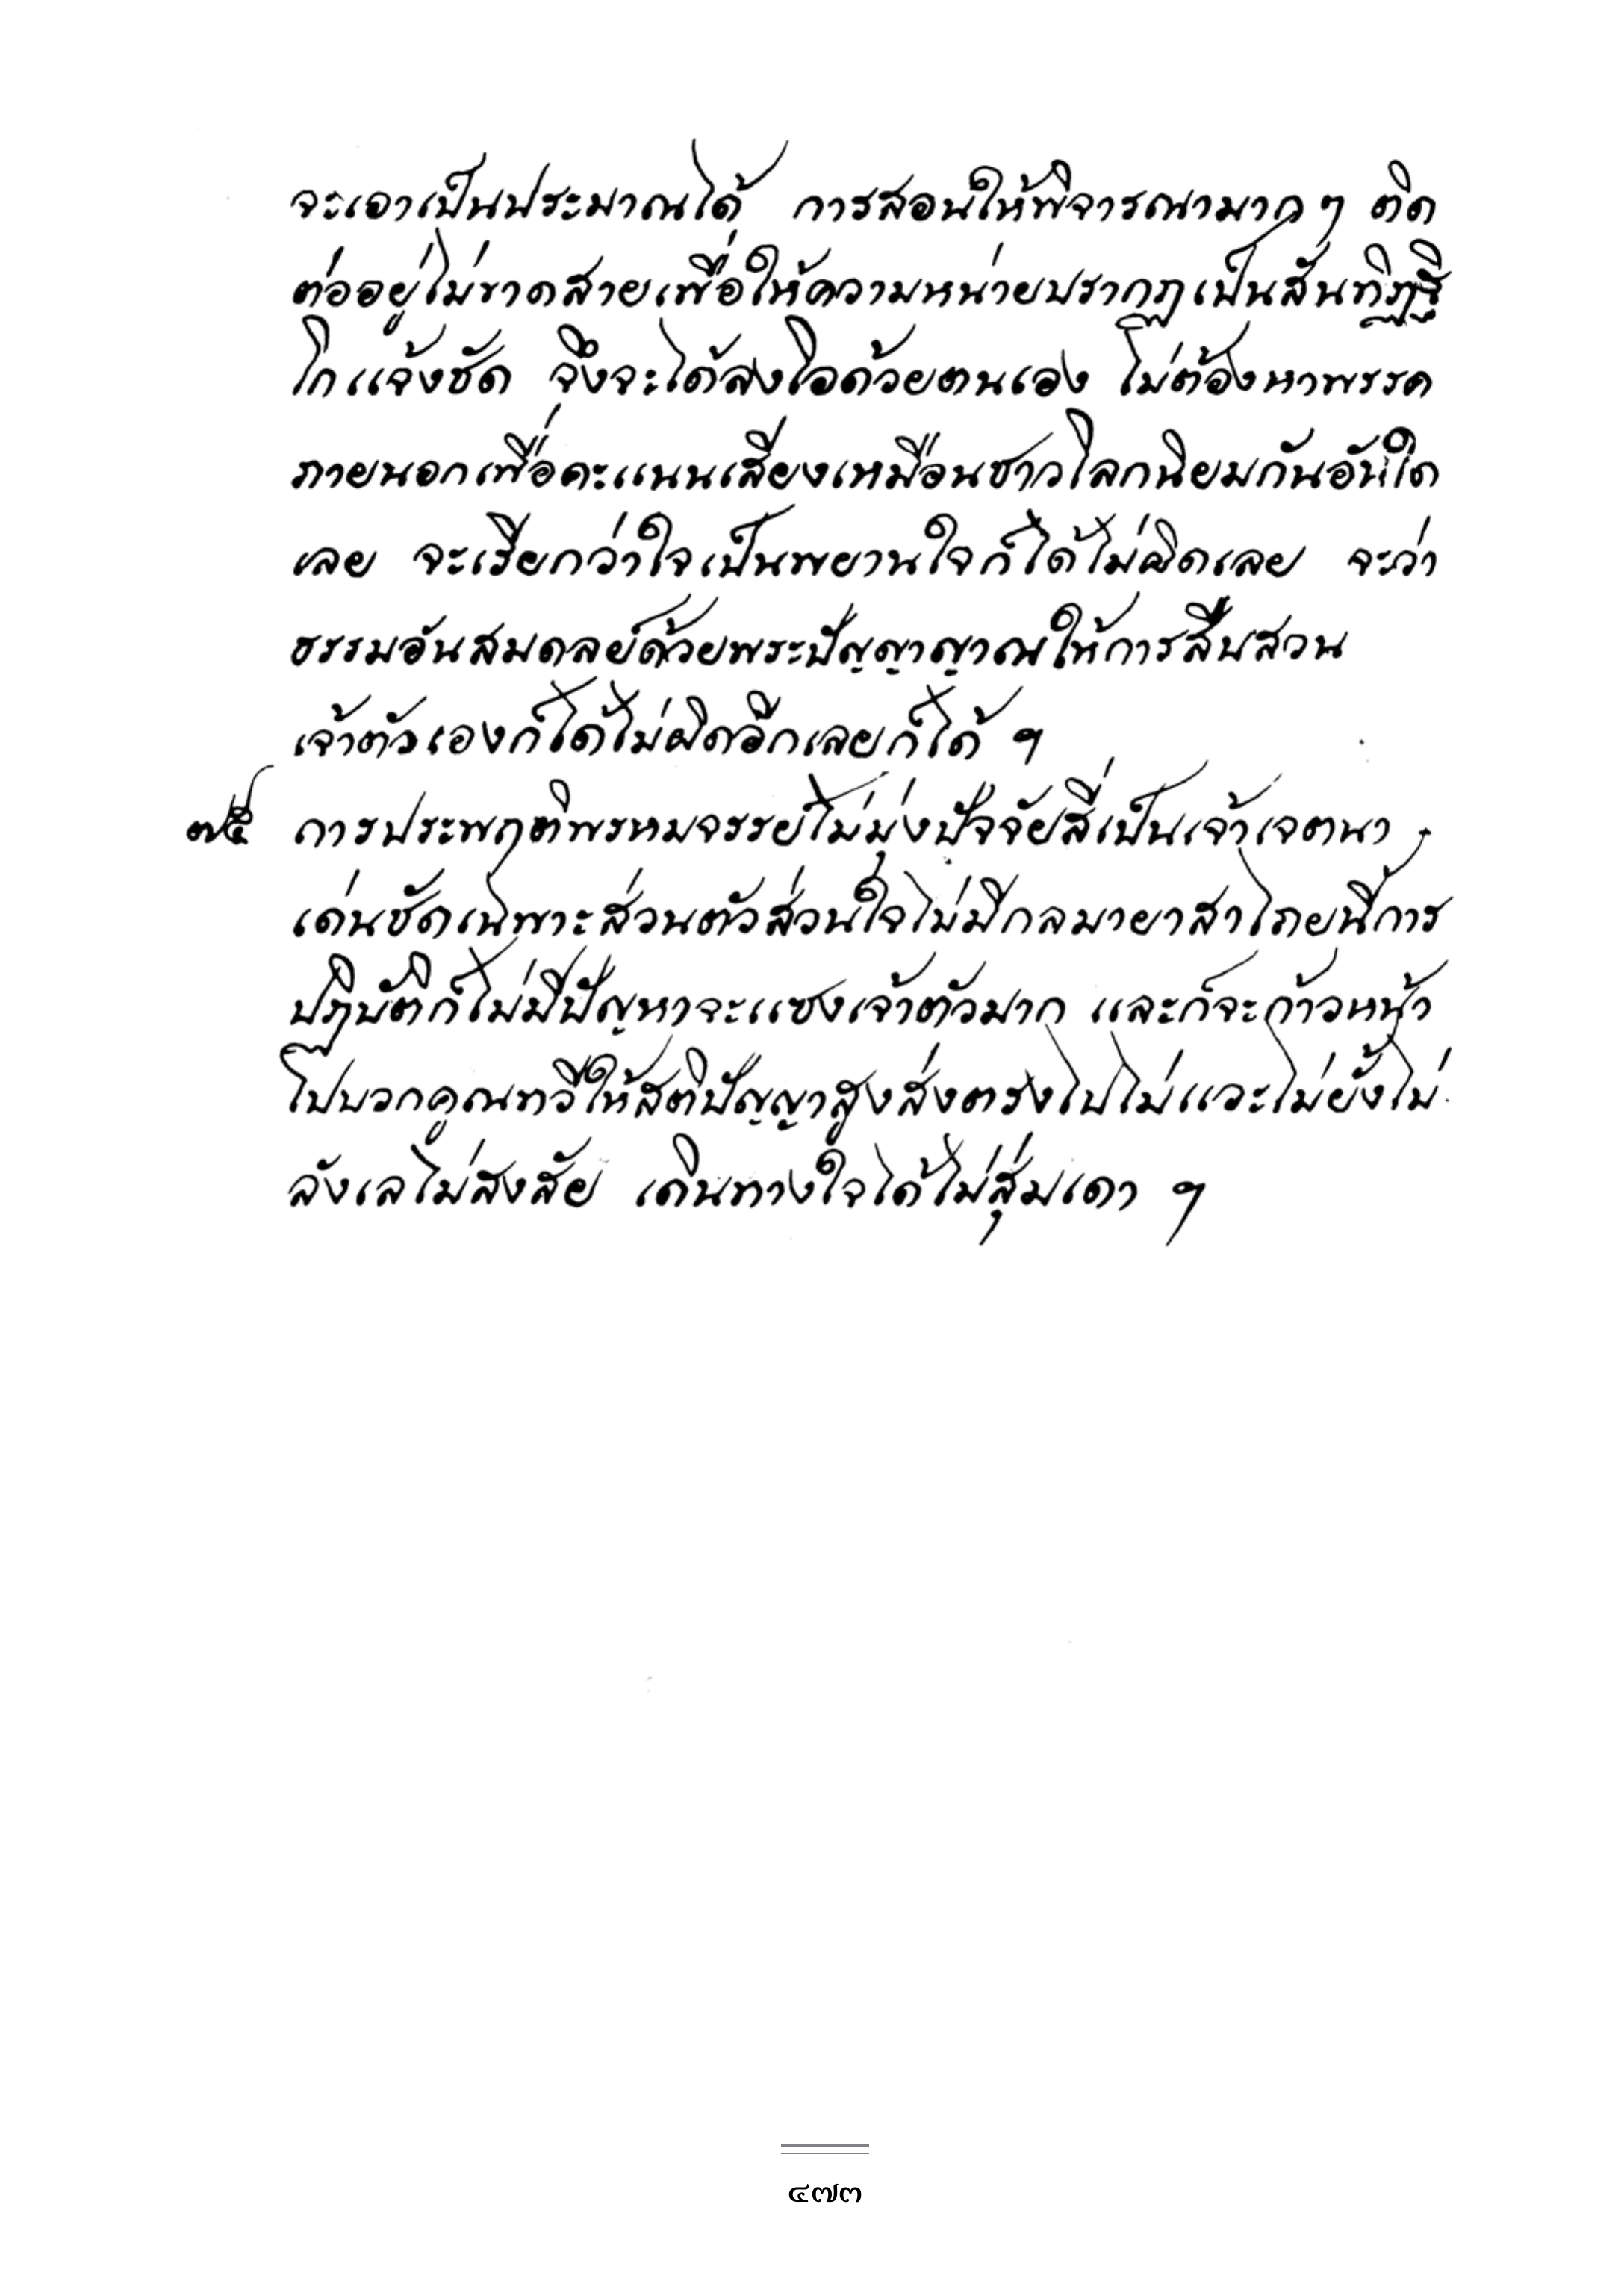 จะเอาเป็นประมาณได้ การสอนให้พิจารณามาก ๆ ติด
ต่ออยู่ไม่ขาดสายเพื่อให้ความหน่ายปรากฏเป็นสันทิฏฐิ
โกแจ้งชัด จึงจะได้ส่งใจด้วยตนเอง ไม่ต้องหาพรรค
ภายนอกเพื่อคะแนนเสียงเหมือนชาวโลกนิยมกันอันใด
เลย จะเรียกว่าใจเป็นพยานใจก็ได้ไม่ผิดเลย จะว่า
ธรรมอันสมดุลย์ด้วยพระปัญญาญาณให้การสืบสวน
เจ้าตัวเองก็ได้ไม่ผิดอีกเลยก็ได้ ฯ
๗๕ การประพฤติพรหมจรรย์ไม่มุ่งปัจจัยสี่เป็นเจ้าเจตนา
เด่นชัดเฉพาะส่วนตัวส่วนใจไม่มีกลมายาสาไถยนี้การ
ปฏิบัติก็ไม่มีปัญหาจะแซงเจ้าตัวมาก และก็จะก้าวหน้า
ไปบวกคูณทวีให้สติปัญญาสูงส่งตรงไปไม่แวะไม่ยั้งไม่
ลังเลไม่สงสัย เดินทางใจได้ไม่สุ่มเดา ฯ
๔๗๓